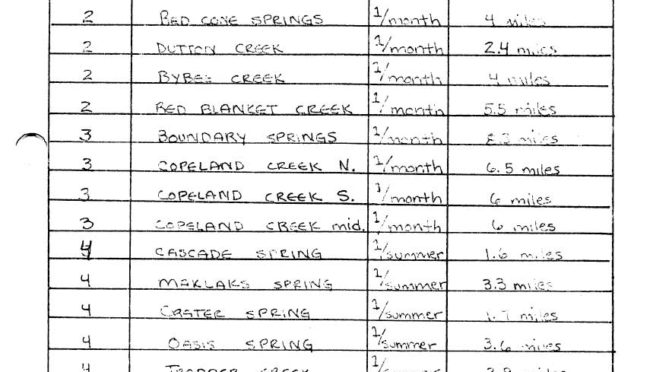 2 RED CONE SPRINGS 1/month 4 miles
2 DUTTON CREEK 1/month 2.4 miles
2 BYBEE CREEK 1/month 4 miles
2 RED BLANKET CREEK 1/month 5.5 miles
3 BOUNDARY SPRINGS 1/month miles
3 COPELAND CREEK N. 1/month 6.5 miles
3 COPELAND CREEK S. 1/month 6 miles
3 COPELAND CREEK mid. 1/month 6 miles
4 CASCADE SPRING 1/summer 1.6 miles
4 MAKLAKS SPRING 1/summer 3.3 miles
4 SPRING 1/summer 1.7 miles
4 OASIS SPRING 1/summer 3.6 miles
4 CREEK 1/summer miles